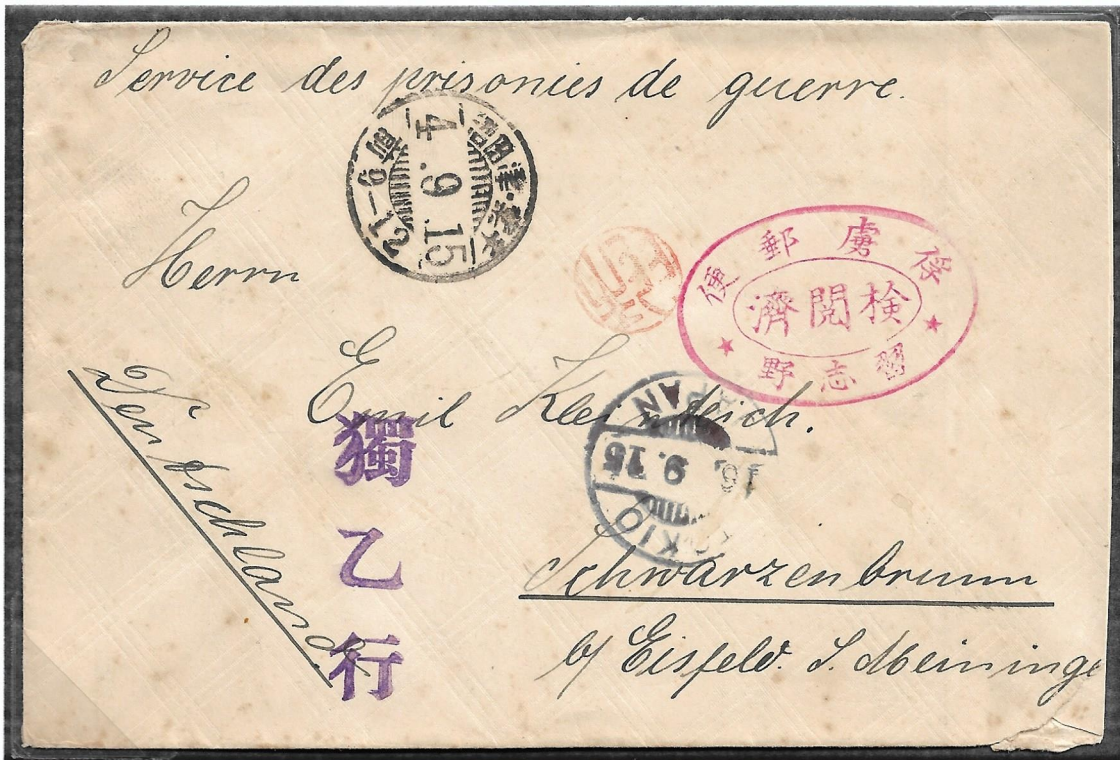 Service des prisonies de guerre.
4.9.15
前 9-12
俘虜郵便
検閲済
習志野
Herrn
Emil Kleindeich.
Deutschland.
獨乙行
JAPAN
9.15
Schwarzenbrunn
b/ Eisfeld. S. Meininge